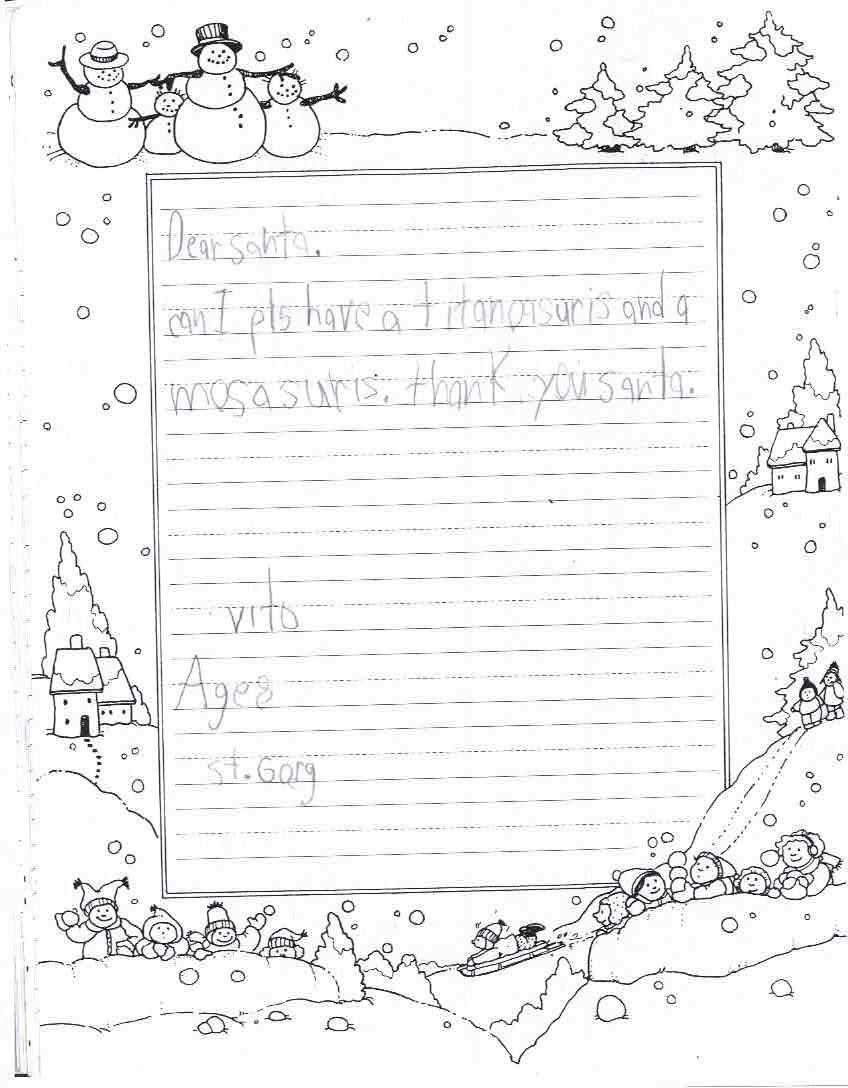 Dear santa.
can I pls have a titanoasuris and a
mosasuris. thank you santa.
vito
Age 8
st. Gorg